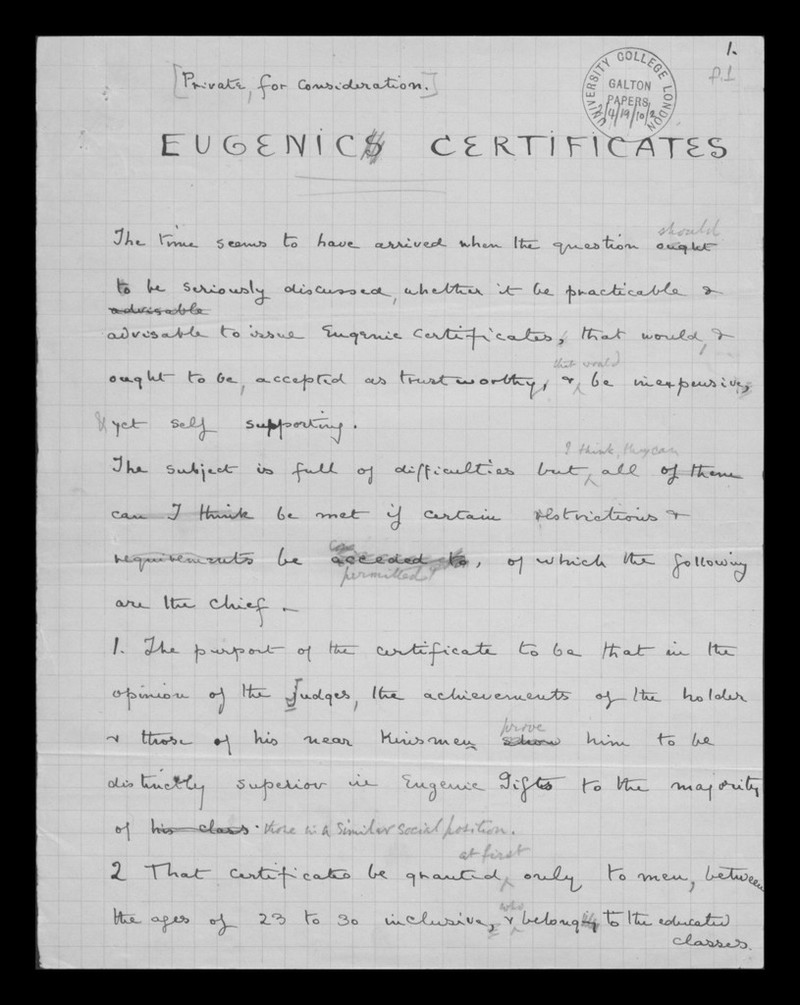 1.
f.1
[Private, for consideration.]
UNIVERSITY COLLEGE LONDON
GALTON
PAPERS
2/4/19/10/2
EUGENICS CERTIFICATES
should
The time seems to have arrived when the question ought
to be seriously discussed, whether it be practicable &
advisable
advisable to issue Eugenic Certificates, that would, &
that would
ought to be, accepted as trustworthy, & be inexpensive,
& yet self supporting.
I think, they can
The subject is full of difficulties but, all of them
can I think be met if certain restrictions &
requirements be acceded to, of which the following
permitted
are the chief.—
1. The purport of the certificate to be that in the
opinion of the Judges, the achievements of the holder
prove
& those of his near Kinsmen show him to be
distinctly superior in Eugenic Gifts to the majority
of his class. those in a similar social position.
at first
2 That certificates be granted, only to men, between
who
the ages of 23 to 30 inclusive, & belong to the educated
classes.